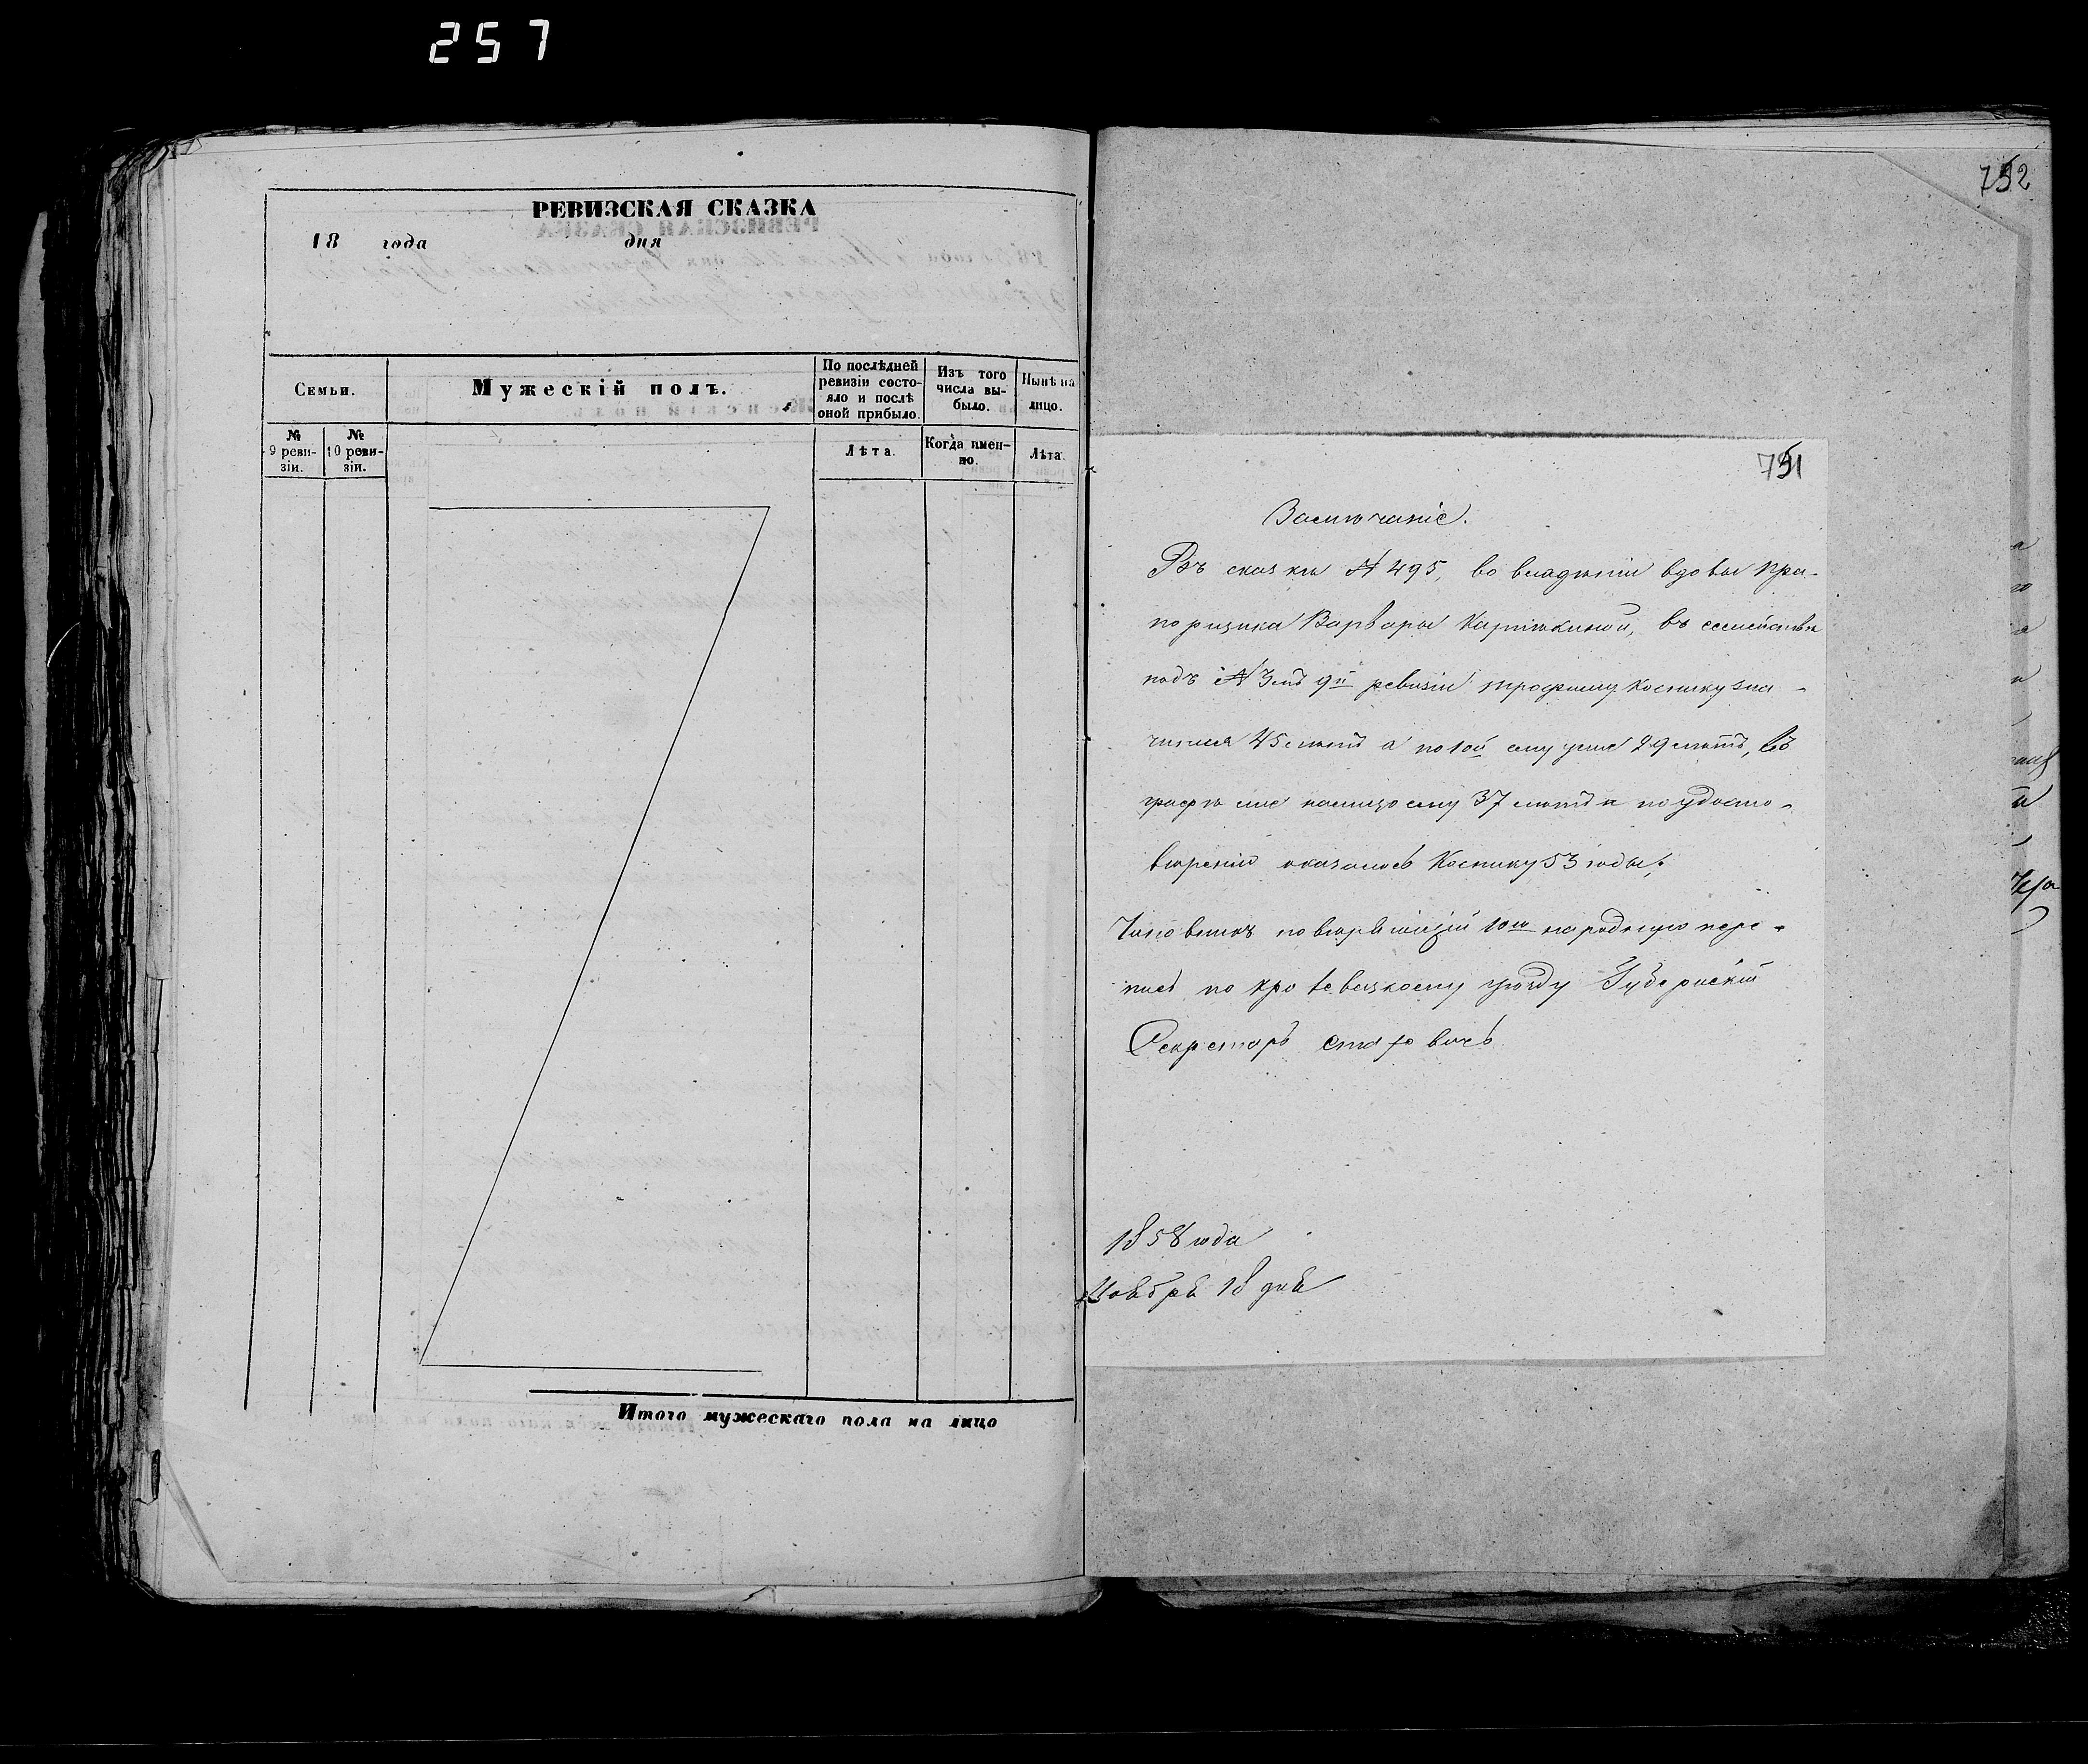 257
РЕВИЗСКАЯ СКАЗКА
18 года дня
Семьи.
Мужескій полъ.
По послѣдней ревизіи состояло и послѣ оной прибыло.
Изъ того числа выбыло.
Нынѣ на лицо.
№ 9 ревизіи.
№ 10 ревизіи.
Лѣта.
Когда именно.
Лѣта
Итого мужескаго пола на лицо
752
751
Замѣчаніе.
Въ сказкѣ № 495, во владѣніи вдовы пра-
порщика Варвары, въ семействѣ
подъ № 3мъ 9й ревизіи Трофиму Коснику зна-
чится 45 лѣтъ а по 10й ему уже 29 лѣтъ, въ
графѣ же налицо ему 37 лѣтъ и по удосто-
вѣренію оказалось Коснику 53 годы;
Чиновникъ повѣрявшій 10ю народную пере-
пись по Кролевецкому уѣзду Губернскій
Секретарь
1858 года
Ноября 18 дня